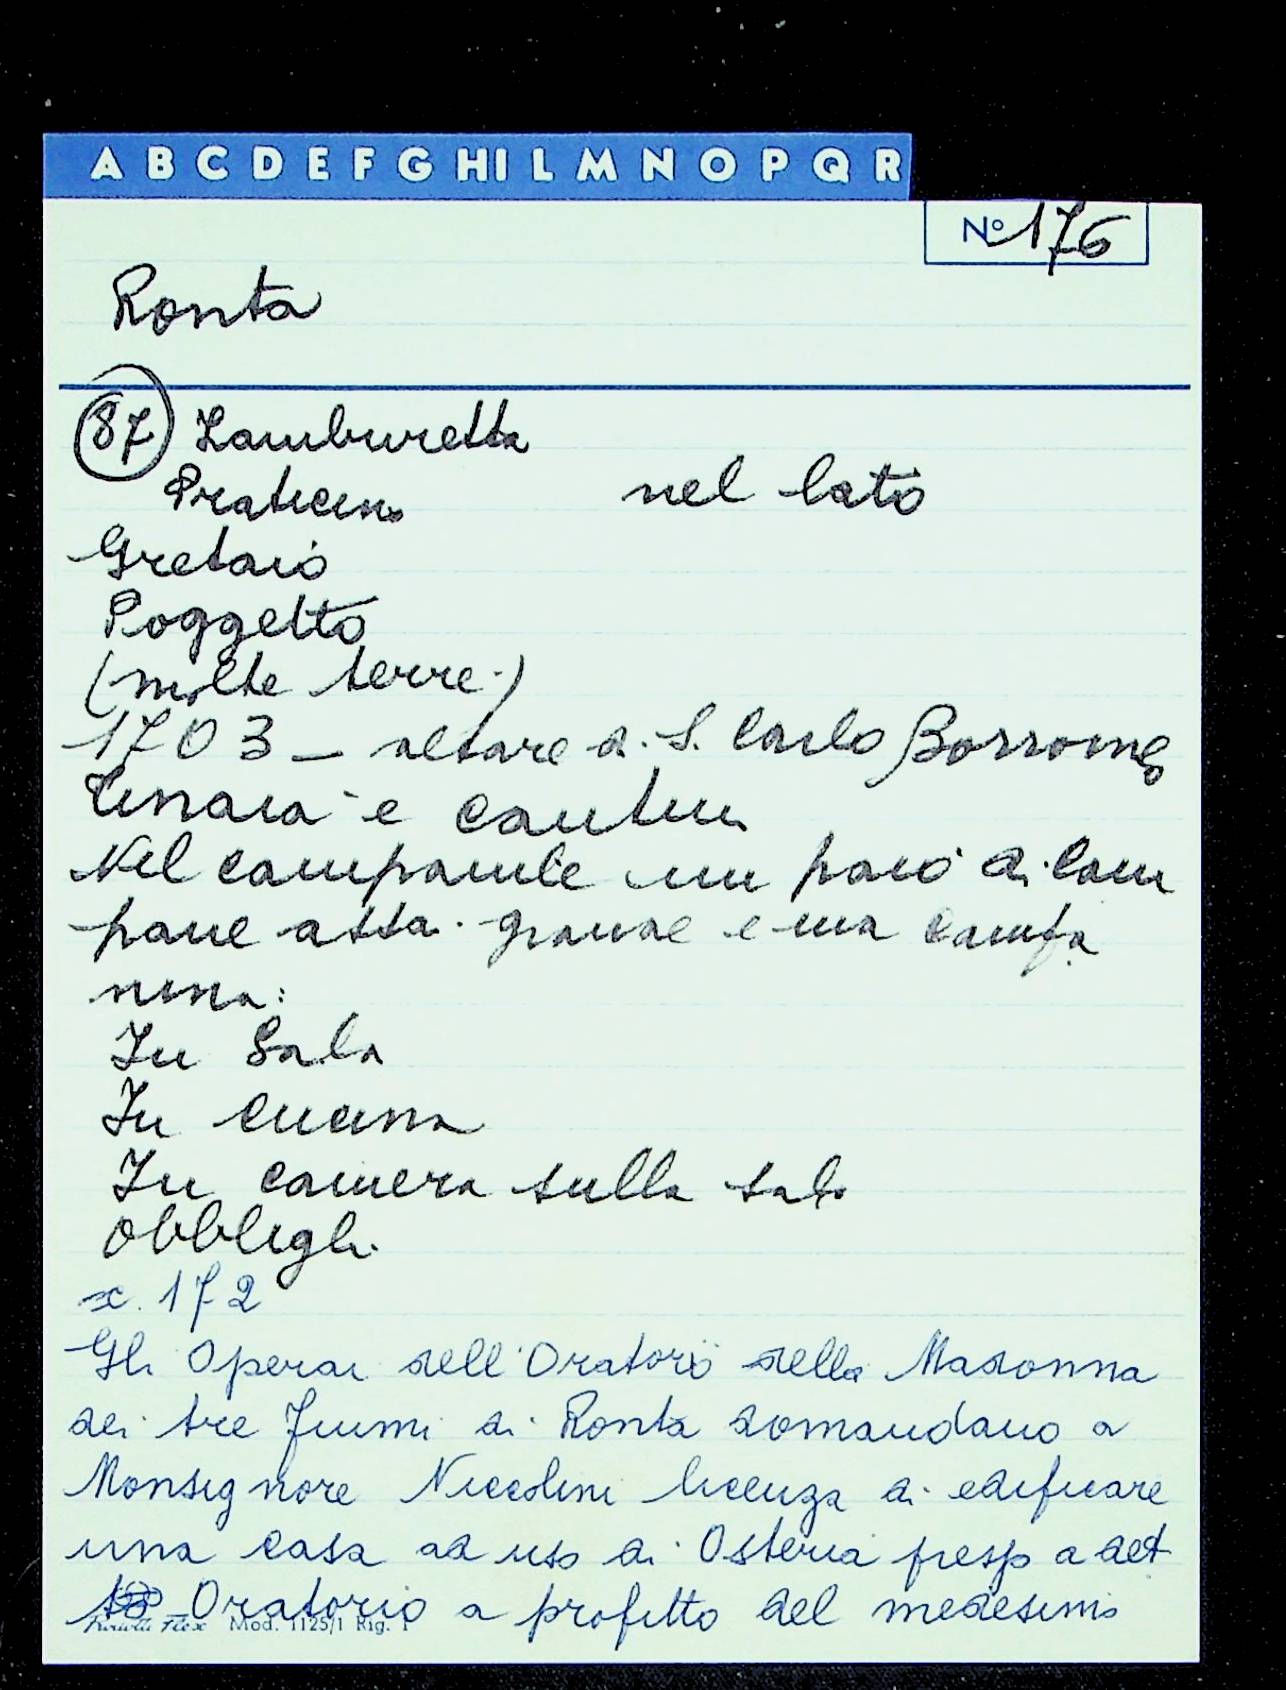 A B C D E F G HI L M N O P Q R
Nº 176
Ronta
87 Zamburetta
Praticino nel lato
Gretaio
Poggetto
(molte terre.)
1703 - altare di S. Carlo Borromeo
Tinaia e cantina
Nel campanile un paio di cam
pane assai grande e una campa
nina:
In Sala
In cucina
In camera sulla sala
Obblighi
x. 172
Gli Operai dell'Oratorio della Madonna
dei tre fiumi di Ronta domandano a
Monsignore Niccolini licenza di edificare
una casa ad uso di Osteria presso a det
to Oratorio a profitto del medesimo
Mod. 1125/1 Rig. 1